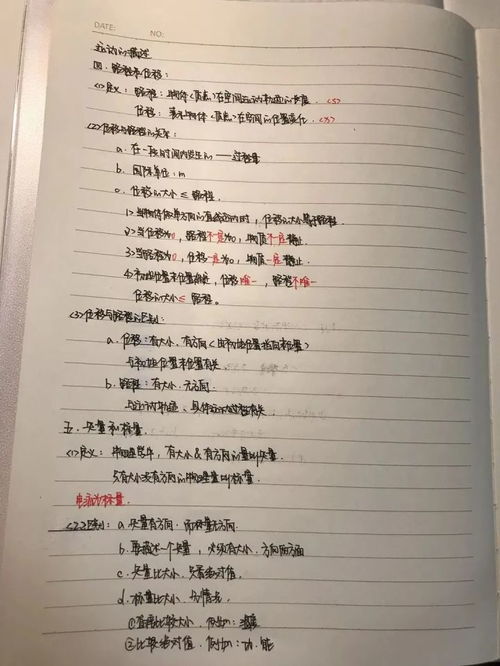 DATE: NO:
运动的描述
四. 路程和位移:
<1>定义: 路程: 物体(质点)在空间运动轨迹的长度. <S>
位移: 表示物体(质点)在空间的位置变化. <X>
<2>位移与路程的关系:
a. 在一段时间内发生的——过程量
b. 国际单位: m
c. 位移的大小 ≤ 路程.
1>当物体做单方向的直线运动时, 位移的大小等于路程.
2>当位移为0, 路程不一定为0, 物质不一定静止.
3>当路程为0, 位移一定为0, 物质一定静止.
4>初始位置末位置确定, 位移唯一, 路程不唯一
位移的大小 ≤ 路程.
<3>位移与路程的区别:
a. 位移: 有大小. 有方向<由初始位置指向末位置>
与初始位置末位置有关.
b. 路程: 有大小. 无方向.
与运动轨迹、具体运动过程有关.
五. 矢量和标量.
<1>定义: 物理量中, 有大小&有方向的量叫矢量.
只有大小没有方向的物理量叫标量.
电流为标量.
<2>区别: a. 矢量有方向. 而标量无方向.
b. 要描述一个矢量, 必须有大小. 方向两方面
c. 矢量比大小. 只看绝对值.
d. 标量比大小. 分情况.
①直接比较大小. 例如: 温度
②比较绝对值. 例如: 功. 能